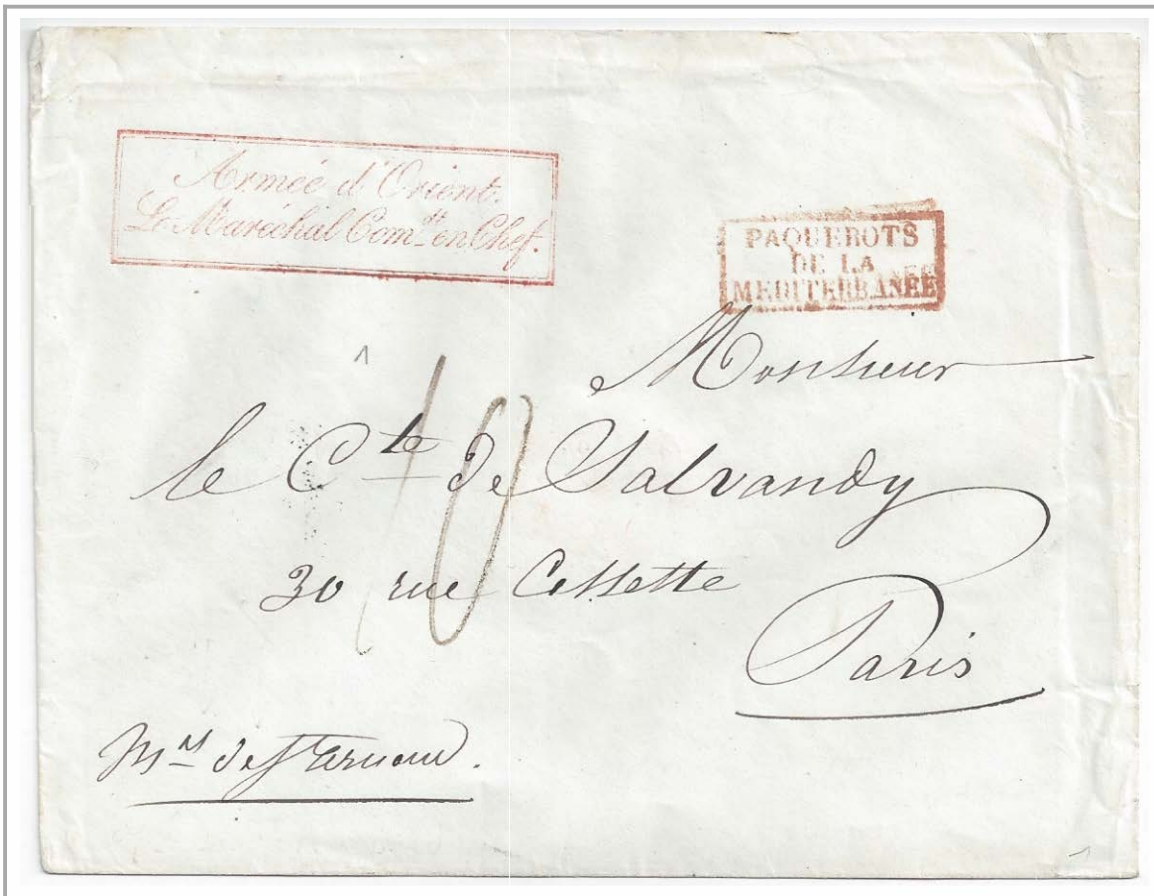 Armée d'Orient.
Le Maréchal Com.dt en Chef.
PAQUEBOTS
DE LA
MEDITERRANÉE
Monsieur
10
le Cte de Salvandy
30 rue Cassette
Paris
Mal de St Arnaud.